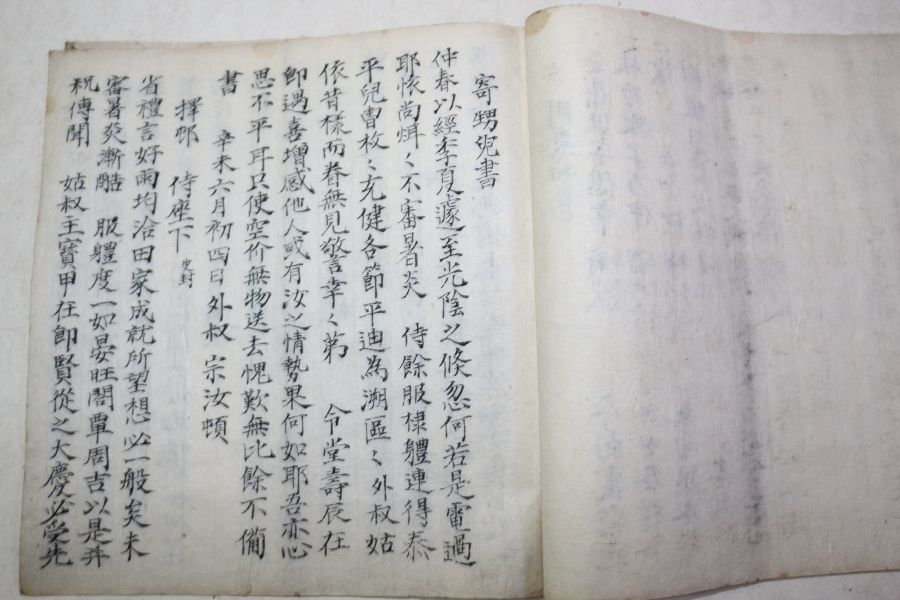 寄甥兒書
仲春以經季夏遽至光陰之倏忽何若是電過
耶悵尚炳〻不審暑炎 侍餘服棣體連得泰
平兒曺枚〻充健各節平迪為溯區〻外叔姑
依昔樣而眷無見警幸〻第 令堂壽辰在
卽遇喜增感他人或有汝之情勢果何如耶吾亦心
思不平耳只使空价無物送去愧歎無比餘不備
書 辛未六月初四日外叔 宗汝頓
擇邨 侍座下
省禮言好雨均洽田家成就所望想必一般矣未
審暑炎漸酷 服軆度一如晏旺閤覃周吉以是并
祝傳聞 姑叔主寶甲在卽賢從之大慶必受先